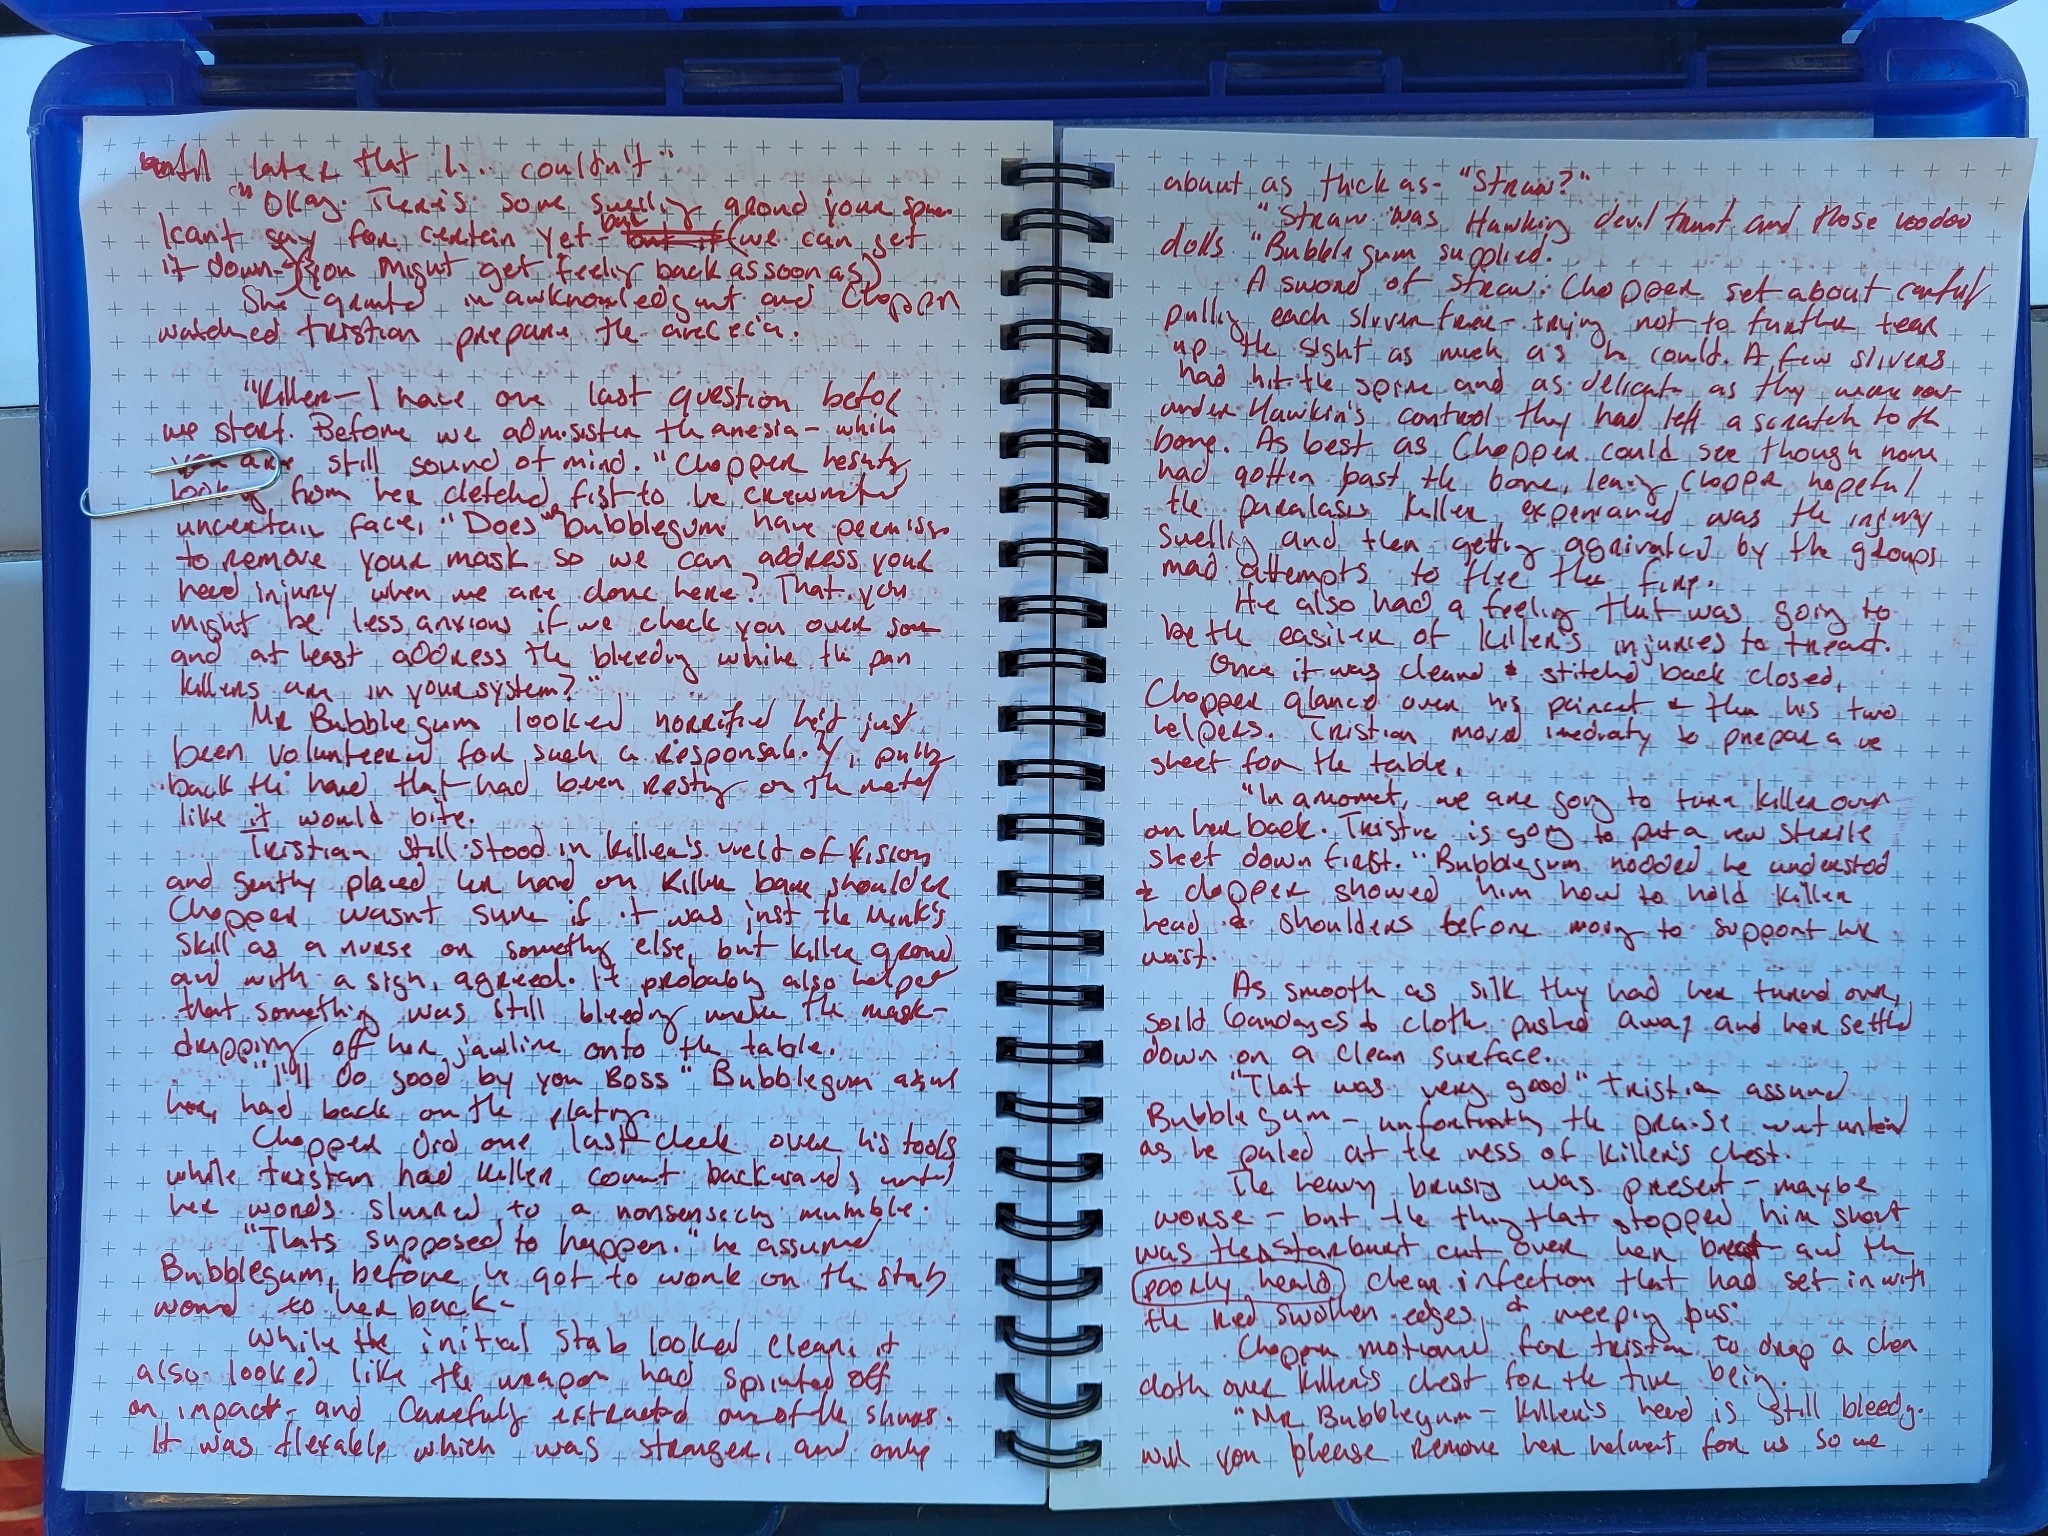 until later that h.. couldn't"
"Okay. There is some swelling around your spine.
I cant say for certain yet - but (we can get
it down - you might get feeling back as soon as)
She grunted in awknowledgmt and Chopper
watched Tristian prepare the
"Killer - I have one last question before
we start. Before we admisister the anesia - while
you are still sound of mind." Chopper hesitates
looking from her cletched fist to he crewmates
uncertain face, "Does Mr bubblegum have permisso
to remove your mask so we can address your
head injury when we are done here? That you
might be less anxious if we check you over soon
and at least address the bleeding while the pain
killers are in your system?"
Mr Bubblegum looked horrified he'd just
been volunteered for such a responsability, pulling
back the hand that had been resting on the metal
like it would bite.
Tristian still stood in killer's vield of vision
and gently placed her hand on Killer bare shoulder
Chopper wasnt sure if it was just the Mink's
skill as a nurse or somethng else, but killer groand
and with a sigh, agreed. It probably also helped
that something was still bleeding under the mask -
dripping off her jawline onto the table.
"I'll do good by you Boss" Bubblegum
her, hand back on the
Chopper did one last check over his tools
while tristan had killer count backwards, until
her words slurred to a nonsensecly mumble.
"Thats supposed to happen." he assured
Bubblegum, before he got to work on the stab
wound to her back -
While the initial stab looked clean; it
also looked like the weapon had splinted off
on impact - and Carefully extracted one of the shivers.
It was flexable which was stranger, and only
about as thick as - "Straw?"
"Straw was Hawking devil fruit and those voodoo
dolls." Bubblegum supplied.
A sword of straw. Chopper set about careful
pulling each sliver free - trying not to further tear
up the sight as much as he could. A few slivers
had hit the spine and as delicate as they were now
under Hawkin's control they had left a scratch to the
bone. As best as Chopper could see though none
had gotten past the bone, leaving Chopper hopeful
the paralasis killer experianced was the injury
swelling and then getting aggrivated by the groups
mad attempts to flee the fire.
He also had a feeling that was going to
be the easiler of killer's injuries to treat.
Once it was cleand & stitched back closed,
Chopper glanced over his paincet & then his two
helpers. Tristian moved imediatly to prepare a ne
sheet for the table.
"In a momet, we are going to turn killer over
on her back. Tristian is going to put a new sterile
sheet down first." Bubblegum nodded he understood
& chopper showed him how to hold killer
head & shoulders before moving to support her
waist.
As smooth as silk they had her turned over,
soild bandages & cloth pushed away and her settled
down on a clean surface.
"That was very good" Tristian assured
Bubblegum - unfortunatly the praise went
as he paled at the mess of killer's chest.
The heavy brusing was present - maybe
worse - but the thing that stopped him short
was the starburst cut over her breast and the
poorly heald clear infection that had set in with
the red swollen edges & weeping pus.
Chopper motioned for tristan to drap a clean
cloth over killer's chest for the time being.
"Mr Bubblegum - Killer's head is still bleedg.
will you please remove her helment for us so we